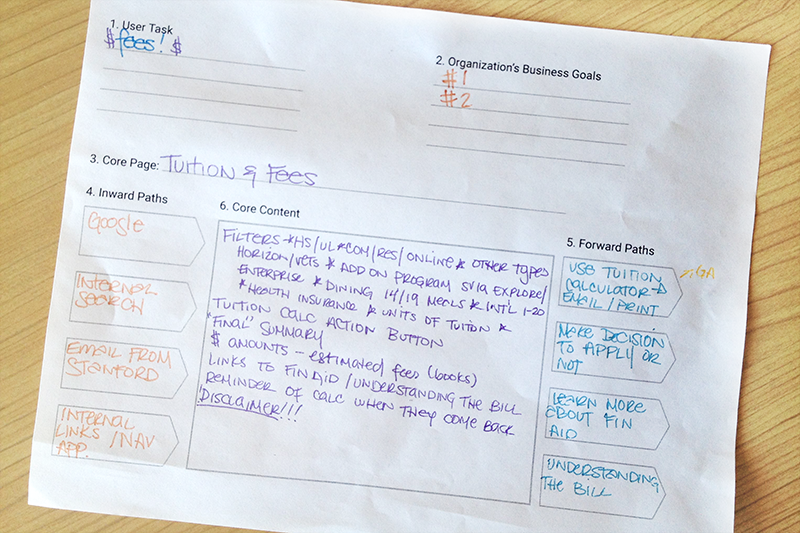 1. User Task
$ fees! $
2. Organization's Business Goals
#1
#2
3. Core Page: TUITION & FEES
4. Inward Paths
GOOGLE
INTERNAL
SEARCH
EMAIL FROM
STANFORD
INTERNAL
LINKS / NAV
APP.
6. Core Content
FILTERS → *HS/UL*COM/RES/ONLINE * OTHER TYPES
HORIZON/VETS * ADD ON PROGRAM SVIA EXPLORE/
ENTERPRISE * DINING 14/19 MEALS * INT'L 1-20
*HEALTH INSURANCE * UNITS OF TUITON *
TUITION CALC ACTION BUTTON
"FINAL" SUMMARY
$ AMOUNTS - estimated fees (books)
LINKS TO FIN AID / UNDERSTANDING THE BILL
REMINDER OF CALC WHEN THEY COME BACK
DISCLAIMER!!!
5. Forward Paths
USE TUITION
CALCULATOR →
EMAIL / PRINT
MAKE DECISION
TO APPLY OR
NOT
LEARN MORE
ABOUT FIN
AID
UNDERSTANDING
THE BILL